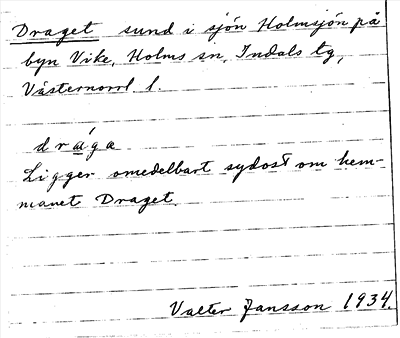 Draget sund i sjön Holmsjön på
byn Vike, Holms sn, Indals tg,
Västernorrl l.
drága
Ligger omedelbart sydost om hem-
manet Draget.
Valter Jansson 1934.